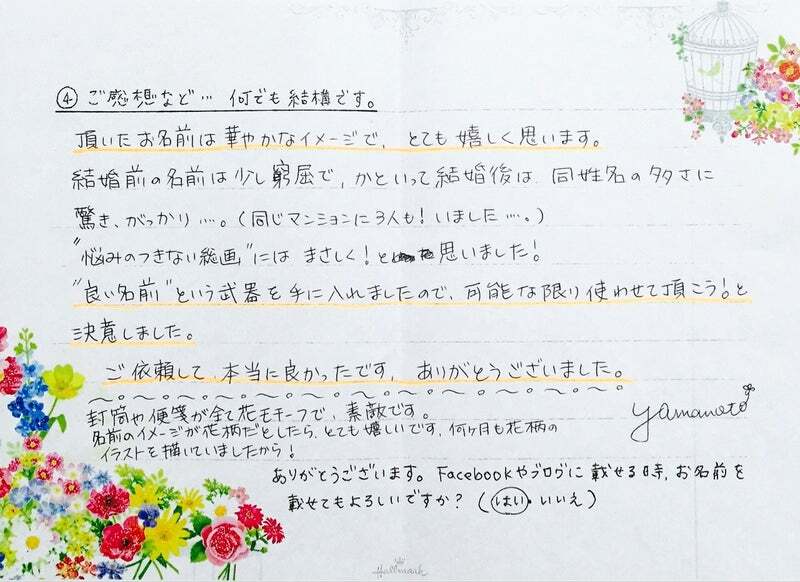 ④ ご感想など… 何でも結構です。
頂いたお名前は華やかなイメージで、とても嬉しく思います。
結婚前の名前は少し窮屈で、かといって結婚後は同姓名の多さに
驚き、がっかり…。(同じマンションに3人も!いました…。)
"悩みのつきない総画"にはまさしく!と思いました!
"良い名前"という武器を手に入れましたので、可能な限り使わせて頂こう!と
決意しました。
ご依頼して、本当に良かったです。ありがとうございました。
封筒や便箋が全て花モチーフで、素敵です。
名前のイメージが花柄だとしたら、とても嬉しいです。何ヶ月も花柄の
イラストを描いていましたから!
yamamoto
ありがとうございます。Facebookやブログに載せる時、お名前を
載せてもよろしいですか?(はい・いいえ)
Hallmark